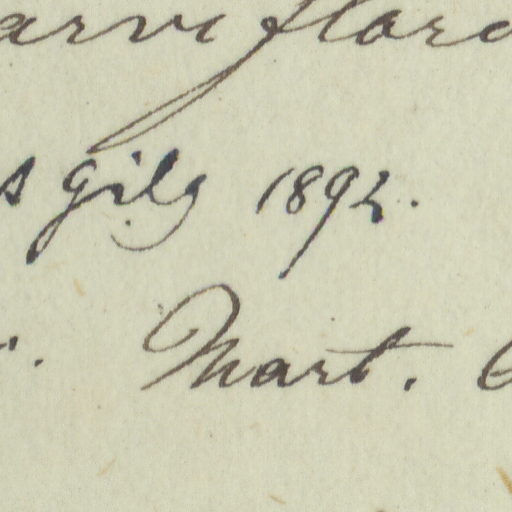 arviflora
s Gilg 1892.
. Mart.